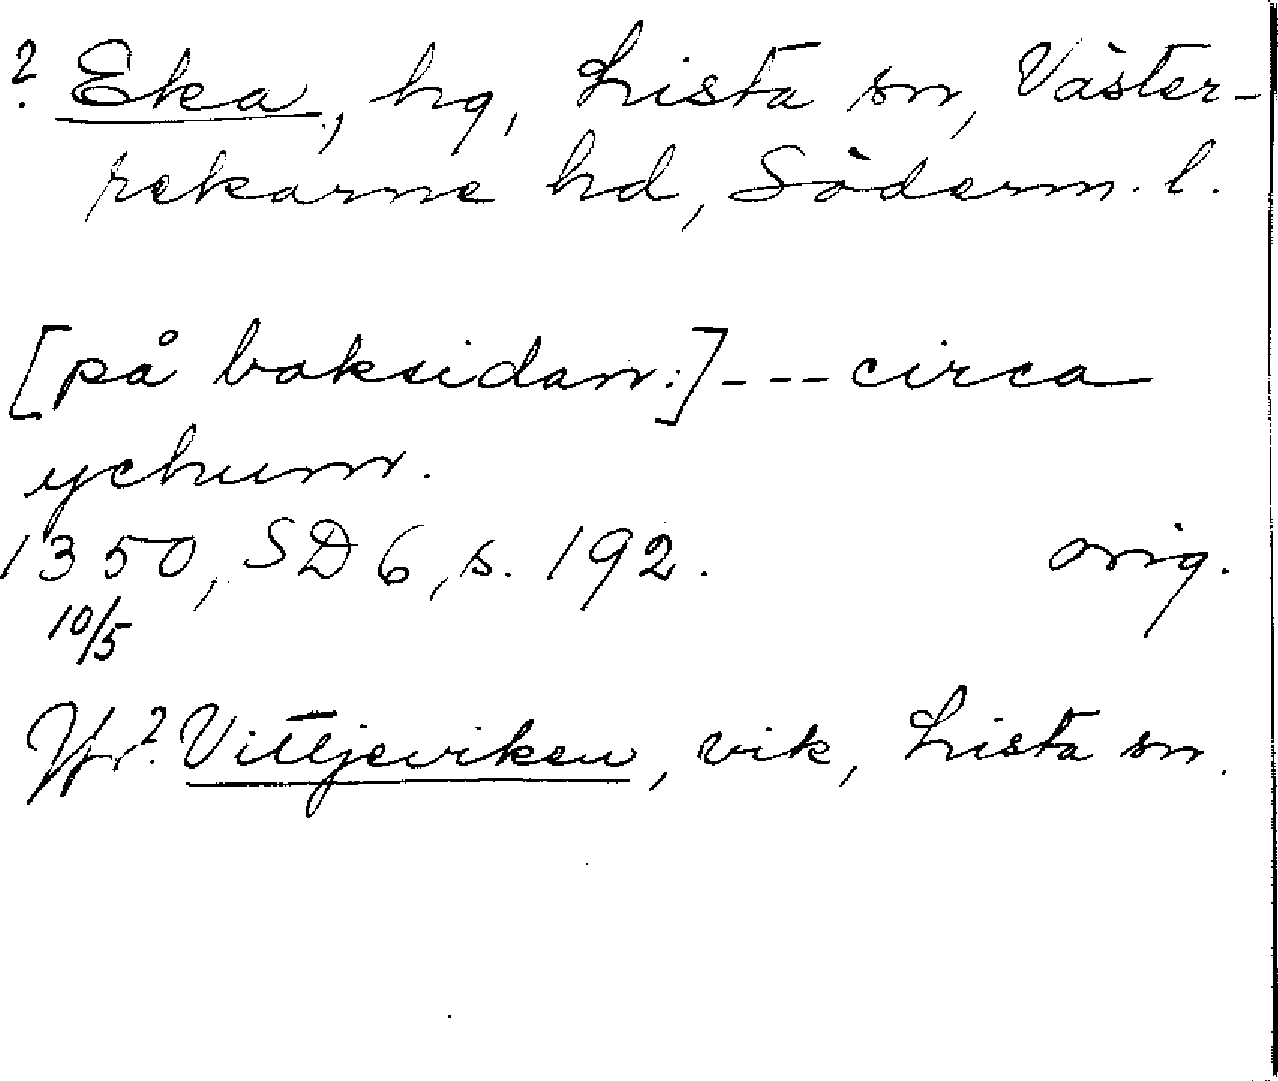 ? Eka, hg, Lista sn, Väster-
rekarne hd, Söderm. l.
[på baksidan:]---circa
ychum.
1350, SD 6, s. 192. orig.
10/5
Jfr? Villjeviken, vik, Lista sn.